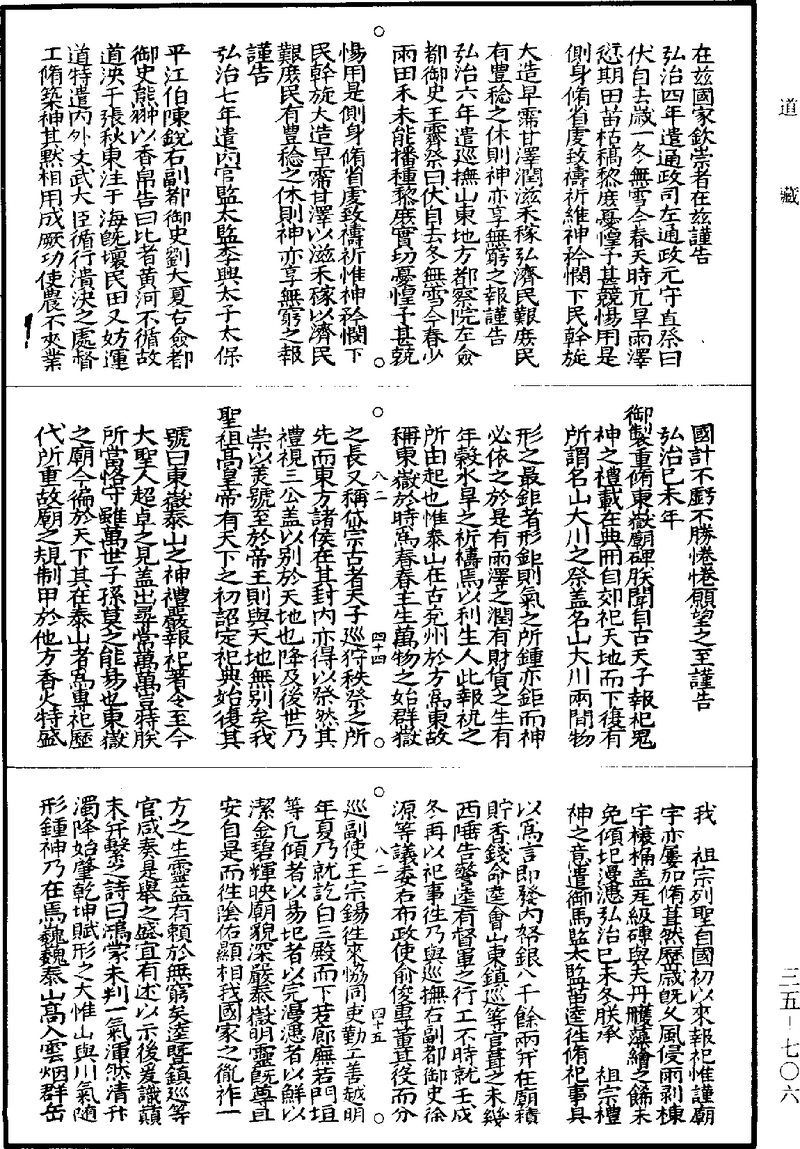 道藏
在玆國家欽崇者在玆謹告
弘治四年遣通政司左通政元守直祭曰
伏自去歲一冬無雪今春天時亢旱雨澤
愆期田苗枯槁黎庶憂惶予甚兢惕用是
側身脩省虔致禱祈維神矜憫下民幹旋
大造早霈甘澤潤滋禾稼弘濟民艱庶民
有豊稔之休則神亦享無窮之報謹告
弘治六年遣巡撫山東地方都察院左僉
都御史王霽祭曰伏自去冬無雪今春少
雨田禾未能播種黎庶實切憂惶予甚兢
惕用是側身脩省虔致禱祈惟神矜憫下
民幹旋大造早霈甘澤以滋禾稼以濟民
艱庶民有豊稔之休則神亦享無窮之報
謹告
弘治七年遣内官監太監李興太子太保
平江伯陳銳右副都御史劉大夏右僉都
御史熊翀以香帛告曰比者黄河不循故
道泱于張秋東注于海旣壞民田又妨運
道特遣内外文武大臣循行潰決之處督
工脩築神其黙相用成厥功使農不失業
國計不虧不勝惓惓願望之至謹告
弘治己未年
御製重脩東嶽廟碑朕聞自古天子報祀鬼
神之禮載在典冊自郊祀天地而下復有
所謂名山大川之祭盖名山大川兩間物
形之最鉅者形鉅則氣之所鍾亦鉅而神
必依之於是有雨澤之潤有財貨之生有
年穀水旱之祈禱焉以利生人此報祝之
所由起也惟泰山在古兖州於方爲東故
稱東嶽於時爲春春主生萬物之始群嶽
之長又稱岱宗古者天子巡狩秩祭之所
先而東方諸侯在其封内亦得以祭然其
禮視三公盖以别於天地也降及後世乃
崇以美號至於帝王則與天地無別矣我
聖祖髙皇帝有天下之初詔定祀典始復其
號曰東嶽泰山之神禮嚴報祀著令至今
大聖人超卓之見盖出尋常萬萬言特朕
所當恪守雖萬世子孫莫之能易也東嶽
之廟今徧於天下其在泰山者爲專祀歷
代所重故廟之規制甲於他方香火特盛
我　祖宗列聖自國初以來報祀惟謹廟
宇亦屢加脩葺然歷歲旣久風侵雨剥棟
宇榱桷盖瓦級磚與夫丹雘藻繪之餙未
免傾圯漫漶弘治己未冬朕承　祖宗禮
神之意遣御馬監太監苗逵往脩祀事具
以爲言即發内帑銀八千餘兩并在廟積
貯香錢命逵會山東鎮巡等官葺之未幾
西陲告警逵有督軍之行工不時就壬戌
冬再以祀事往乃與巡撫右副都御史徐
源等議委右布政使俞俊專董其役而分
巡副使王宗錫往來恊同吏勤工善越明
年夏乃就訖自三殿而下若廊廡若門垣
等凡傾者以易圯者以完漫漶者以鮮以
潔金碧輝映廟貌深嚴泰嶽明靈旣尊且
安自是而往陰佑顯相我國家之胤祚一
方之生靈益有頼於無窮矣逵暨鎮巡等
官咸奏是舉之盛宜有述以示後爰識顛
末并繫之詩曰鴻蒙未判一氣渾然清升
濁降始肇乾坤賦形之大惟山與川氣隨
形鍾神乃在焉巍巍泰山高入雲烟群岳
八二
四十四
八二
四十五
三五－七〇六